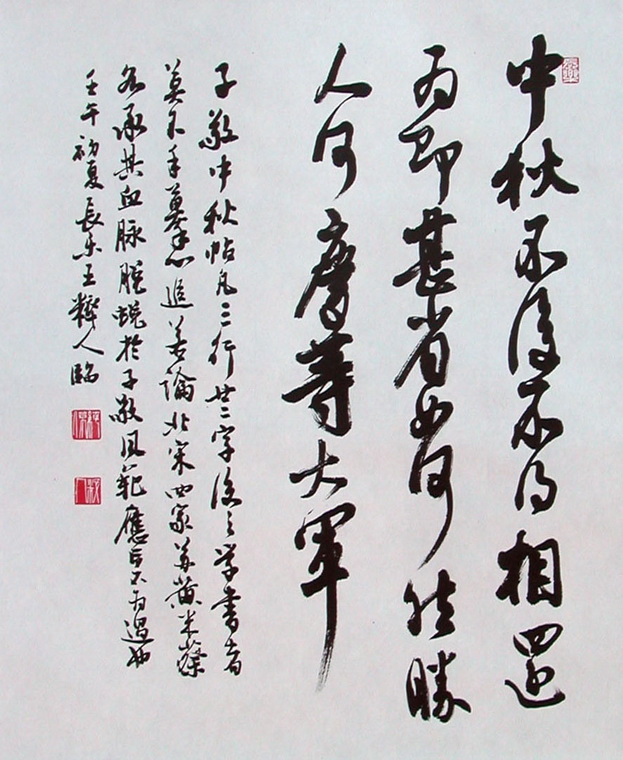 中秋不復不得相還
为即甚省如何然勝
人何慶等大軍
子敬中秋帖凡三行廿二字後之学書者
莫不手摹心追若論北宋四家苏黄米蔡
各承其血脉脱蜕於子敬風範應不为過也
壬午初夏長乐王粹人臨